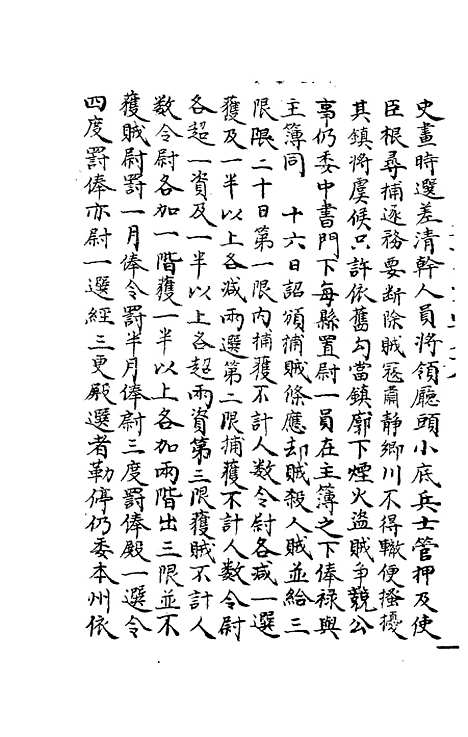 史畫時選差清幹人員將領廳頭小底兵士管押及使
臣根尋捕逐務要斷除賊寇肅静鄉川不得輙便搔擾
其鎮將虞候只許依舊勾當鎮廓下煙火盗賊爭競公
事仍委中書門下每縣置尉一員在主簿之下俸禄與
主簿同　十六日詔頒捕賊條應却賊殺人賊並給三
限限二十日第一限内捕獲不計人数令尉各减一選
獲及一半以上各减兩選第二限捕獲不計人数令尉
各超一資及一半以上各超兩資第三限獲賊不計人
数令尉各加一階獲一半以上各加兩階出三限並不
獲賊尉罰一月俸令罰半月俸尉三度罰俸殿一選令
四度罰俸亦尉一選經三更殿選者勒停仍委本州依